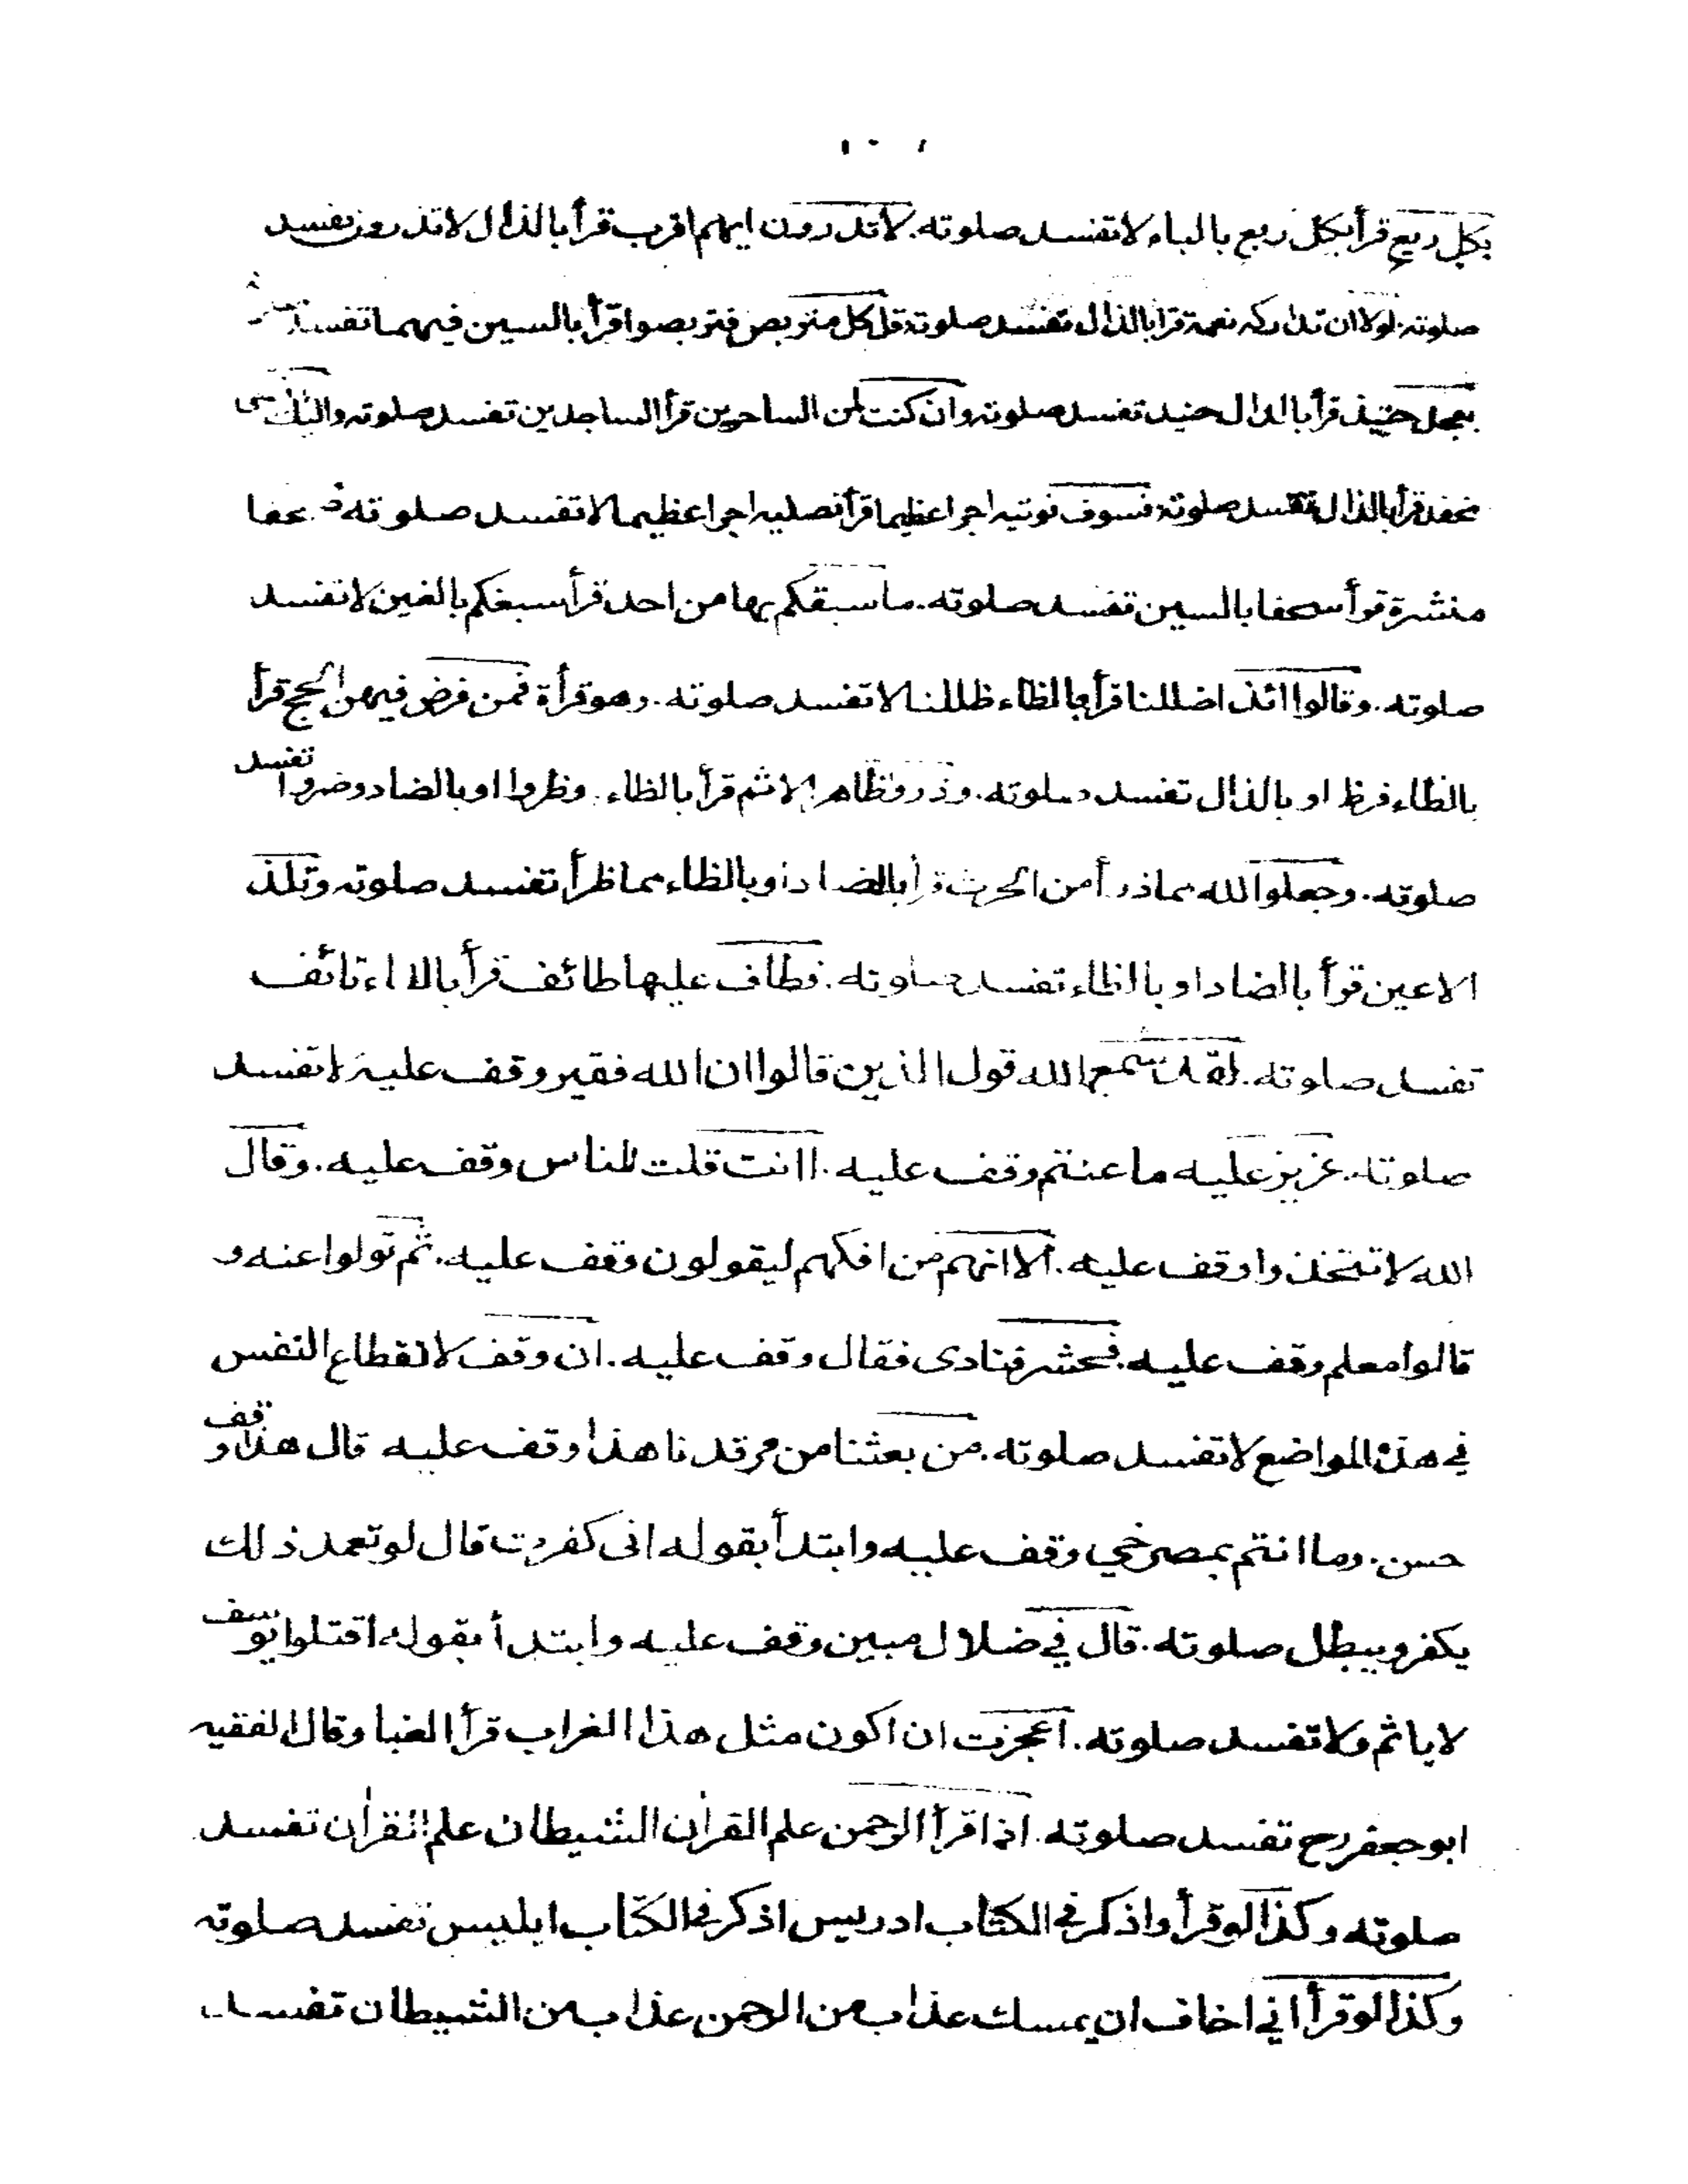 بكل ريع قرأ بكل ربع بالباء لا تفسد صلوته. لا تدرون ايهم اقرب قرأ بالذال لا تذرون تفسد
صلوته. لولا ان تداركه نعمة قرأ بالذال تفسد صلوته. قل كل متربص فتربصوا قرأ بالسين فيهما تفسد
بعجل حنيذ قرأ بالدال حنيد تفسد صلوته وان كنت لمن الساخرين قرأ الساجدين تفسد صلوته
قرأ بالذال تفسد صلوته فسوف نوتيه اجرا عظيما قرأ نصليه اجرا عظيما لا تفسد صلوته صحفا
منشرة قرأ سحفا بالسين تفسد صلوته. ما سبقكم بها من احد قرأ سبغكم بالغين لا تفسد
صلوته. وقالوا ائذا ضللنا قرأ بالظاء ظللنا لا تفسد صلوته. وهو قرأة فمن فرض فيهن الحج قرأ
بالظاء فرظ او بالذال تفسد صلوته. وذروا ظاهر الاثم قرأ بالظاء. وظروا او بالضاد وضروا تفسد
صلوته. وجعلوا لله مما ذرأ من الحرث قرأ بالضاد او بالظاء مما ظرأ تفسد صلوته وتلذ
الاعين قرأ بالضاد او بالظاء تفسد صلوته. فطاف عليها طائف قرأ بالتاء تائف
تفسد صلوته. لقد سمع الله قول الذين قالوا ان الله فقير وقف عليه لا تفسد
صلوته. عزيز عليه ما عنتم وقف عليه. اانت قلت للناس وقف عليه. وقال
الله لا تتخذوا وقف عليه. الا انهم من افكهم ليقولون وقف عليه. ثم تولوا عنه و
قالوا معلم وقف عليه. فحشر فنادى فقال وقف عليه. ان وقف لانقطاع النفس
في هذه المواضع لا تفسد صلوته. من بعثنا من مرقدنا هذا وقف عليه قال هذا وقف
حسن. وما انتم بمصرخي وقف عليه وابتدأ بقوله انى كفرت قال لو تعمد ذلك
يكفر ويبطل صلوته. قال في ضلال مبين وقف عليه وابتدأ بقوله اقتلوا يوسف
لا ياثم ولا تفسد صلوته. اعجزت ان اكون مثل هذا الغراب قرأ الغبا وقال الفقيه
ابو جعفر رح تفسد صلوته. اذا قرأ الرحمن علم القرأن الشيطان علم القرأن تفسد
صلوته وكذا لو قرأ واذكر في الكتاب ادريس اذكر في الكتاب ابليس تفسد صلوته
وكذا لو قرأ اني اخاف ان يمسك عذاب من الرحمن عذاب من الشيطان تفسد